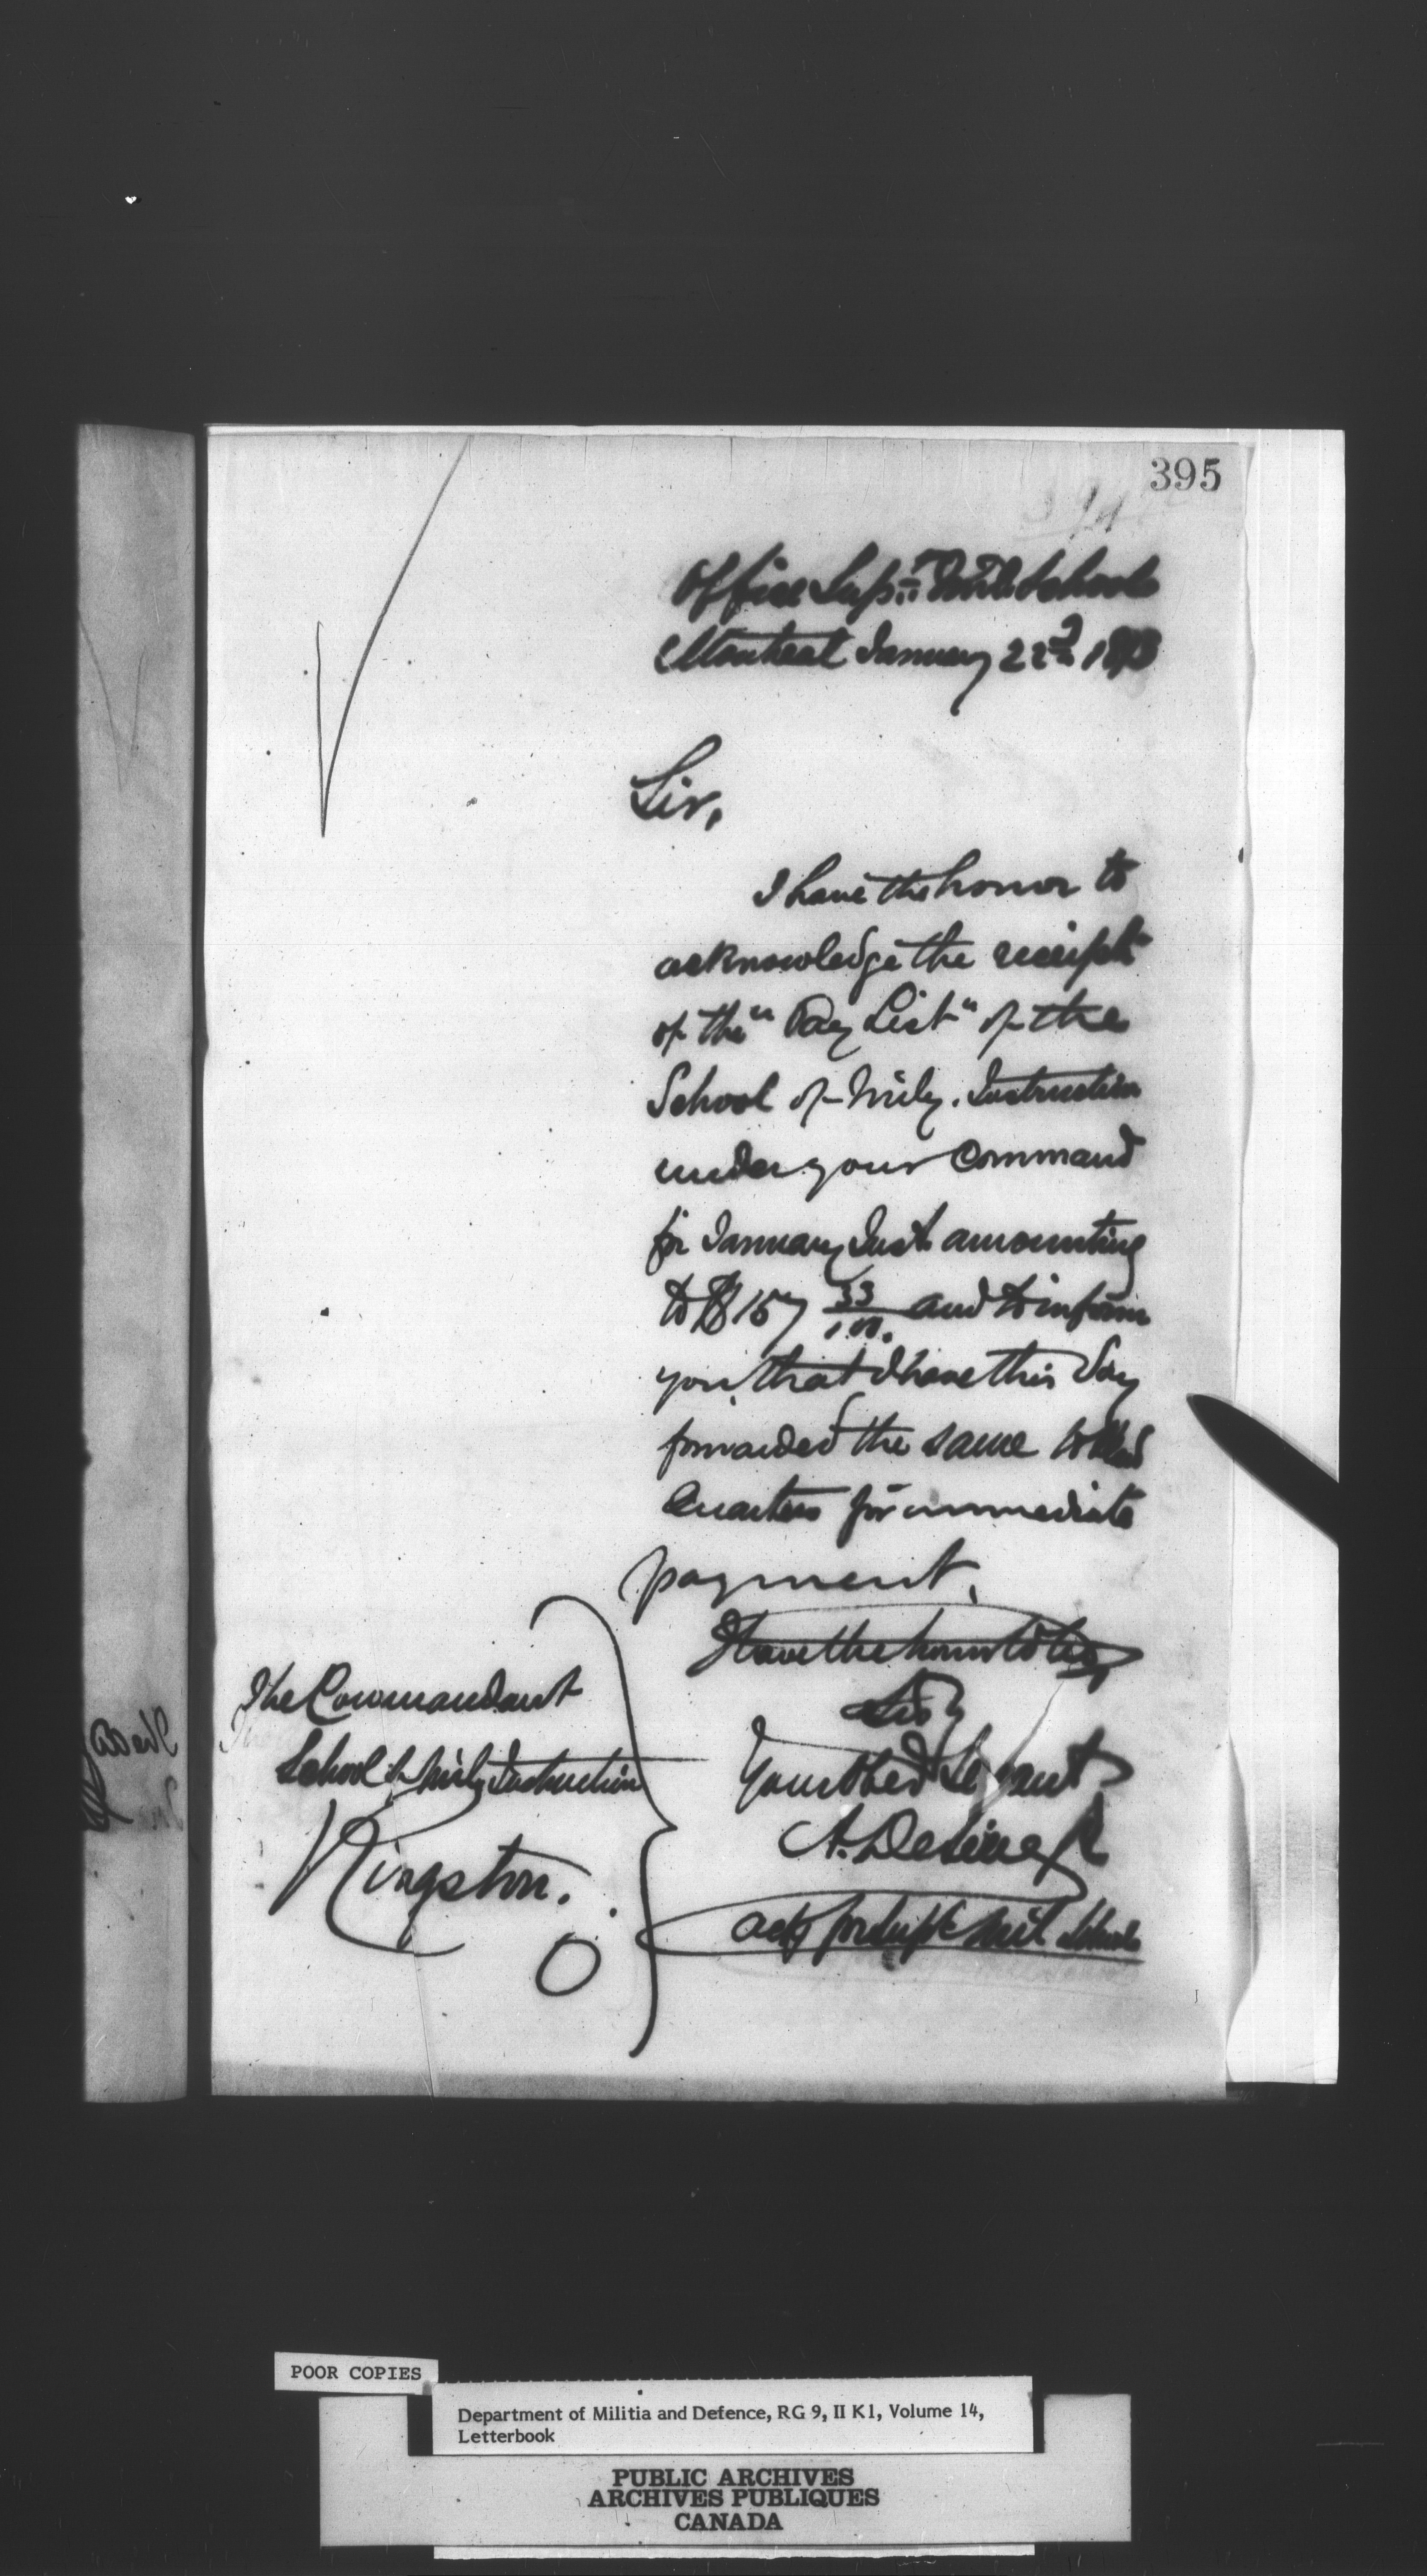 395
Office Supt. Mil. Schools
Montreal January 22nd 1873
Sir,
I have the honor to
acknowledge the receipt
of the "Pay List" of the
School of Mily. Instruction
under your Command
for January Inst. amounting
to $157 33/100. and to inform
you, that I have this day
forwarded the same to Head
Quarters for immediate
payment.
I have the honor to be,
Sir,
Your Obed Servant
A.
actg for Supt Mil Schools
The Commandant
School of Mily Instruction
Kingston.
POOR COPIES
Department of Militia and Defence, RG 9, II K1, Volume 14,
Letterbook
PUBLIC ARCHIVES
ARCHIVES PUBLIQUES
CANADA